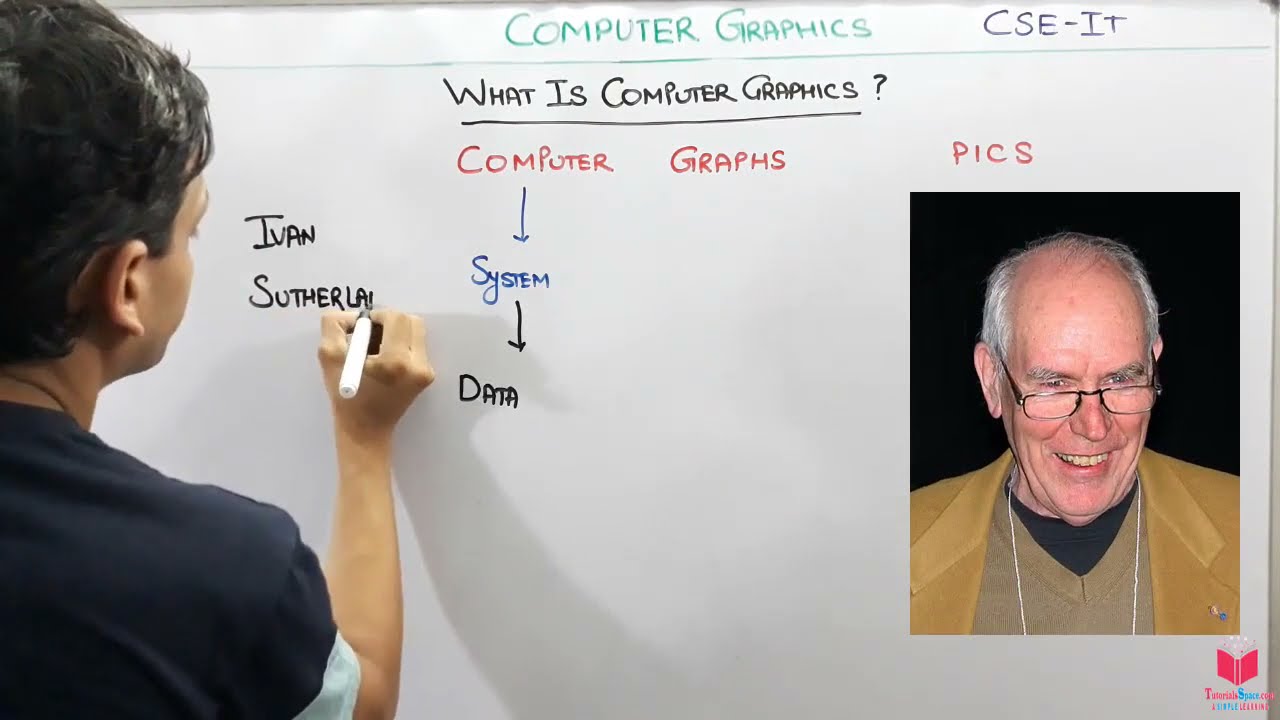 COMPUTER GRAPHICS CSE-IT
WHAT IS COMPUTER GRAPHICS ?
COMPUTER GRAPHS PICS
IVAN
SUTHERLA
SYSTEM
DATA
TutorialsSpace.com
A SIMPLE LEARNING